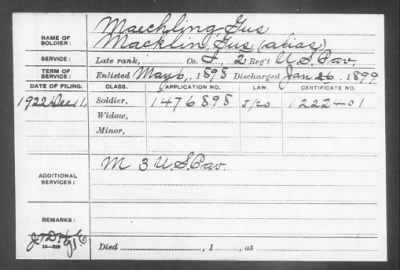 Maechling, Gus
NAME OF SOLDIER: Macklin, Gus (alias)
SERVICE: Late rank, Co. F, 2 Reg't U.S. Cav.
TERM OF SERVICE: Enlisted May 6, 1898 Discharged Jan 26, 1899
DATE OF FILING. CLASS. APPLICATION NO. LAW. CERTIFICATE NO.
1922 Dec 11 Soldier, 1476898 1222-01
Widow,
Minor,
ADDITIONAL SERVICES: M 3 U.S. Cav.
REMARKS:
Died , 1 , at